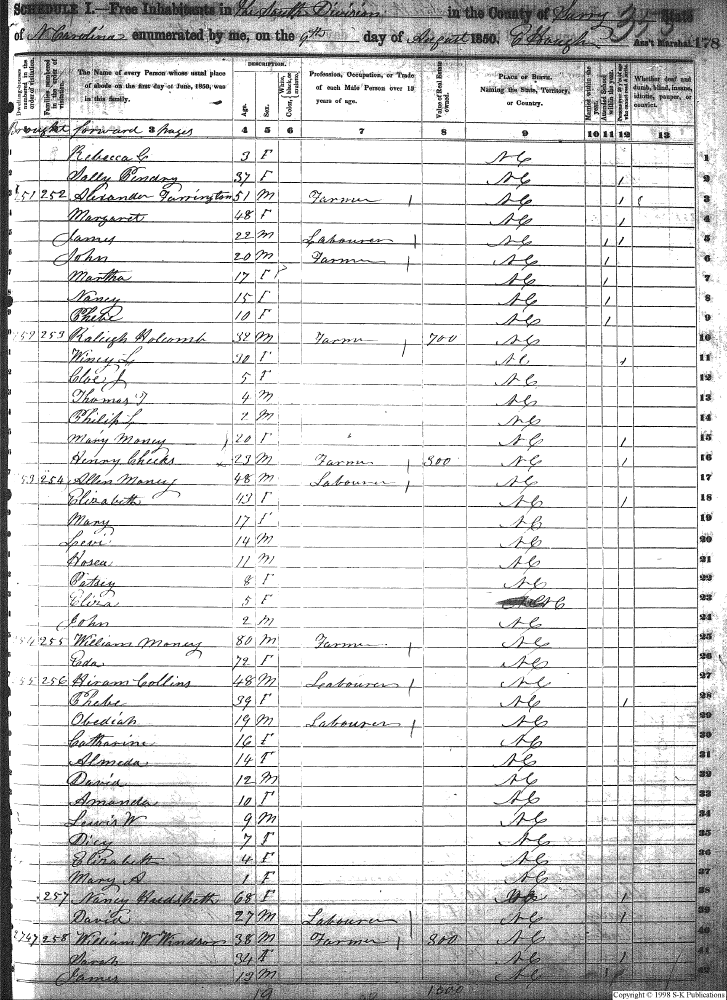 SCHEDULE I.—Free Inhabitants in the South Division in the County of Surry State
of N. Carolina enumerated by me, on the 9th day of August 1850. Ass't Marshal. 178
DESCRIPTION.
The Name of every Person whose usual place of abode on the first day of June, 1850, was in this family.
Age.
Sex.
Color, White, black, or mulatto.
Profession, Occupation, or Trade of each Male Person over 15 years of age.
Value of Real Estate owned.
PLACE OF BIRTH. Naming the State, Territory, or Country.
Married within the year.
Whether deaf and dumb, blind, insane, idiotic, pauper, or convict.
3 4 5 6 7 8 9 10 11 12 13
Brought forward 3 pages
Rebecca C 3 F NC 1
Sally Pendry 37 F NC 1 2
51 252 Alexander Farrington 51 M Farmer 1 NC 1 3
Margaret 48 F NC 1 4
James 22 M Labourer 1 NC 1 1 5
John 20 M Farmer 1 NC 1 6
Martha 17 F NC 1 7
Nancy 15 F NC 1 8
Phebe 10 F NC 1 9
253 Raleigh Holcomb 32 M Farmer 1 700 NC 10
Winey L 30 F NC 1 11
Cloe J 5 F NC 12
Thomas T 4 M NC 13
Philip L 2 M NC 14
Mary Money 20 F " NC 1 15
Henry Cheeks 23 M Farmer 1 300 NC 1 16
53 254 Allen Money 48 M Labourer 1 NC 17
Elizabeth 43 F NC 1 18
Mary 17 F NC 19
Levi 14 M NC 20
Hosea 11 M NC 21
Patsey 8 F NC 22
Eliza 5 F NC 23
John 2 M NC 24
54 255 William Money 80 M Farmer 1 NC 25
Eda 72 F NC 26
55 256 Hiram Collins 48 M Labourer 1 NC 27
Phebe 39 F NC 1 28
Obediah 19 M Labourer 1 NC 29
Catharine 16 F NC 30
Almeda 14 F NC 31
David 12 M NC 32
Amanda 10 F NC 33
Lewis W 9 M NC 34
Dicy 7 F NC 35
Elizabeth 4 F NC 36
Mary A 1 F NC 37
257 Nancy Hudspeth 68 F NC 1 38
David 27 M Labourer 1 NC 1 39
258 William W Windsor 38 M Farmer 1 800 NC 40
Sarah 34 F NC 41
James 13 M NC 42
19 1800
Copyright © 1998 S-K Publications